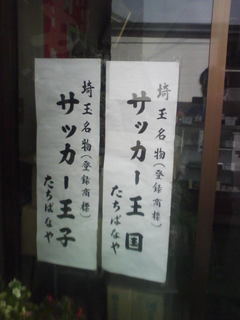 埼玉名物(登録商標)
サッカー王国
たちばなや
埼玉名物(登録商標)
サッカー王子
たちばなや